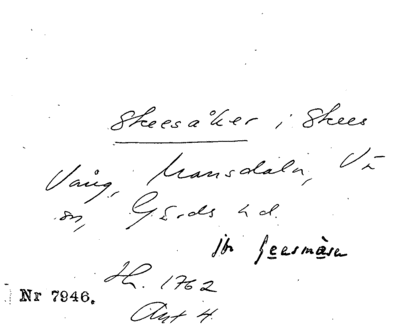 Skeesåker i Skees
Vång, Mansdala, Vä
sn, Gärds hd.
jfr Geesmåsen
Hh. 1762
Akt 4.
Nr 7946.